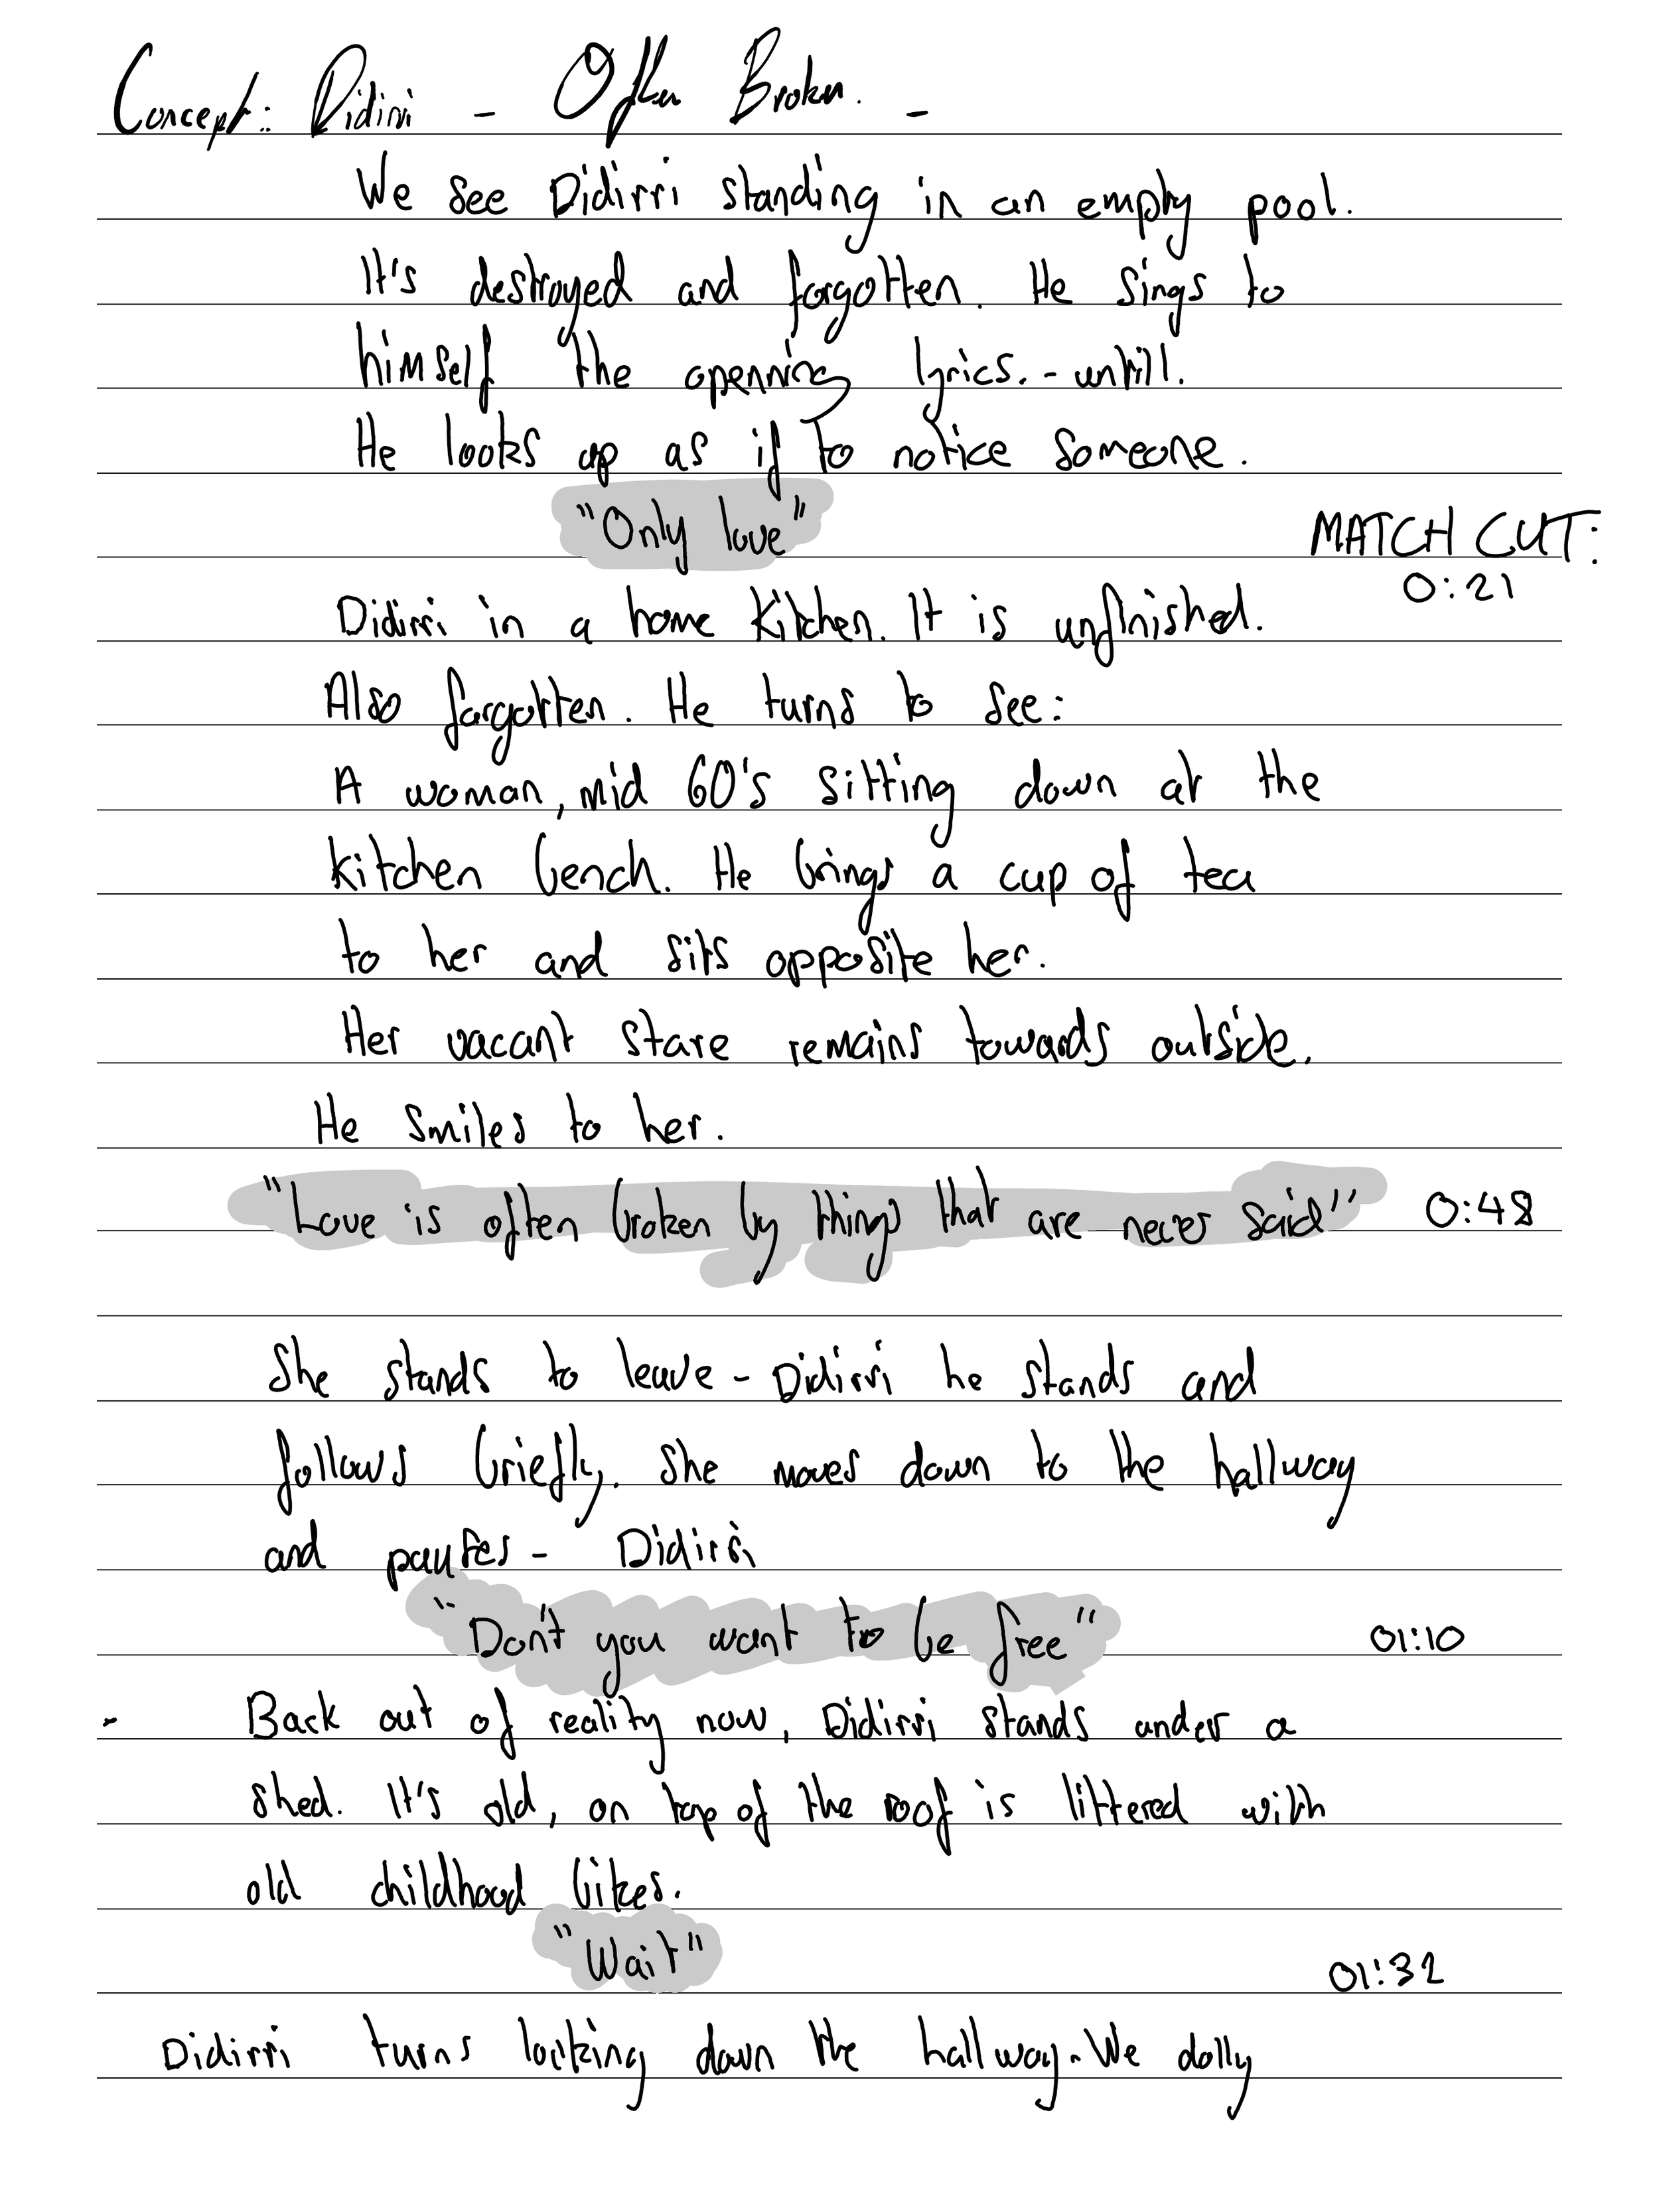 Concept: Didirri - Often Broken. -
We see Didirri standing in an empty pool.
It's destroyed and forgotten. He sings to
himself the openning lyrics. - untill.
He looks up as if to notice someone.
"Only love"
MATCH CUT:
0:21
Didirri in a home kitchen. It is unfinished.
Also forgotten. He turns to see:
A woman, mid 60's sitting down at the
kitchen bench. He brings a cup of tea
to her and sits opposite her.
Her vacant stare remains towards outside.
He smiles to her.
"Love is often broken by things that are never said" 0:48
She stands to leave - Didirri he stands and
follows briefly. She moves down to the hallway
and pauses - Didirri
"Don't you want to be free" 01:10
- Back out of reality now, Didirri stands under a
shed. It's old, on top of the roof is littered with
old childhood bikes.
"Wait" 01:32
Didirri turns looking down the hallway. We dolly